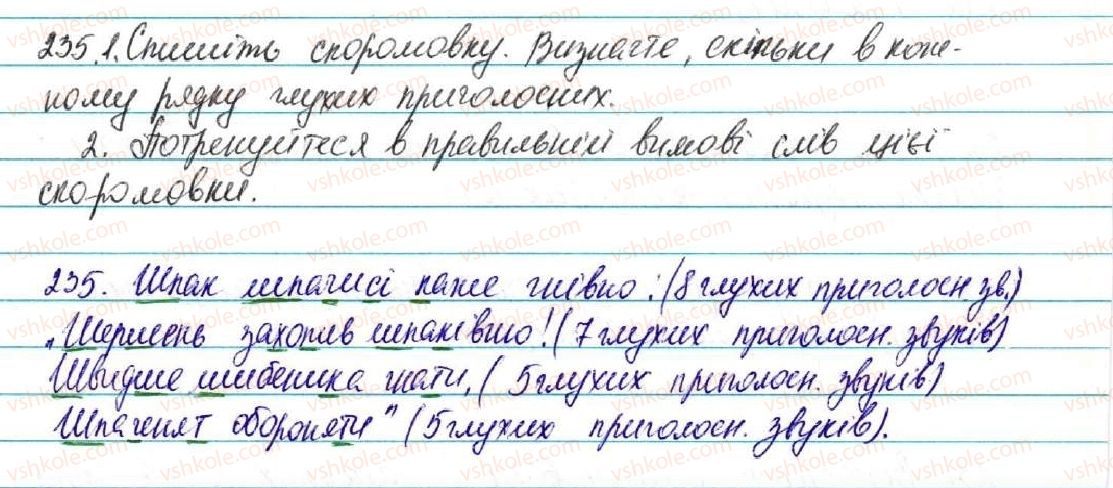 235.1. Спишіть скоромовку. Визначте, скільки в кож-
ному рядку глухих приголосних.
2. Потренуйтеся в правильній вимові слів цієї
скоромовки.
235. Шпак шпачисі каже гнівно: (8 глухих приголосн зв.)
„Шершень захопив шпаківню! (7 глухих приголосн. звуків)
Швидше шибеника гнати, (5 глухих приголосн. звуків)
Шпаченят обороняти" (5 глухих приголосн. звуків).